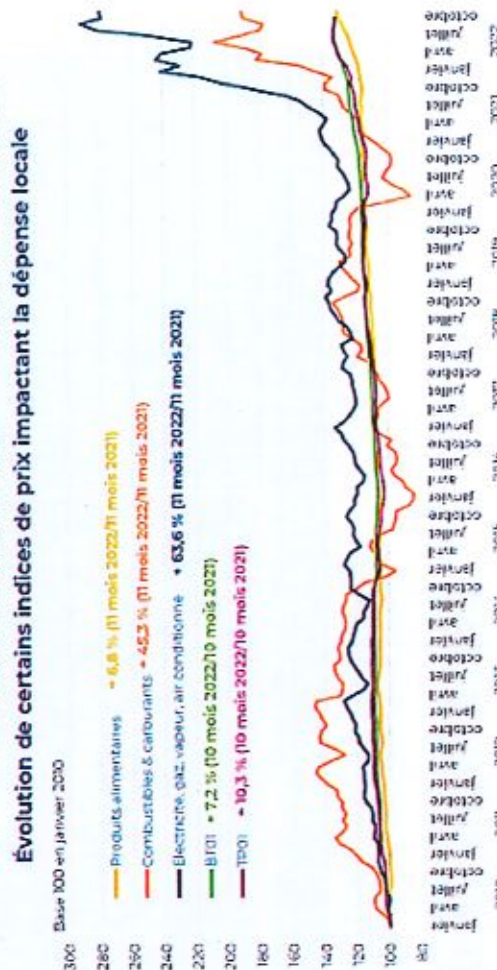 Évolution de certains indices de prix impactant la dépense locale
Base 100 en janvier 2010
300
280
260
240
220
200
180
160
140
120
100
80
Produits alimentaires + 6,8 % (11 mois 2022/11 mois 2021)
Combustibles & carburants + 45,3 % (11 mois 2022/11 mois 2021)
Électricité, gaz, vapeur, air conditionné + 63,6 % (11 mois 2022/11 mois 2021)
BT01 + 7,2 % (10 mois 2022/10 mois 2021)
TP01 + 10,3 % (10 mois 2022/10 mois 2021)
janvier avril juillet octobre janvier avril juillet octobre janvier avril juillet octobre janvier avril juillet octobre janvier avril juillet octobre janvier avril juillet octobre janvier avril juillet octobre janvier avril juillet octobre janvier avril juillet octobre janvier avril juillet octobre janvier avril juillet octobre janvier avril juillet octobre janvier avril juillet octobre
2020 2021 2022